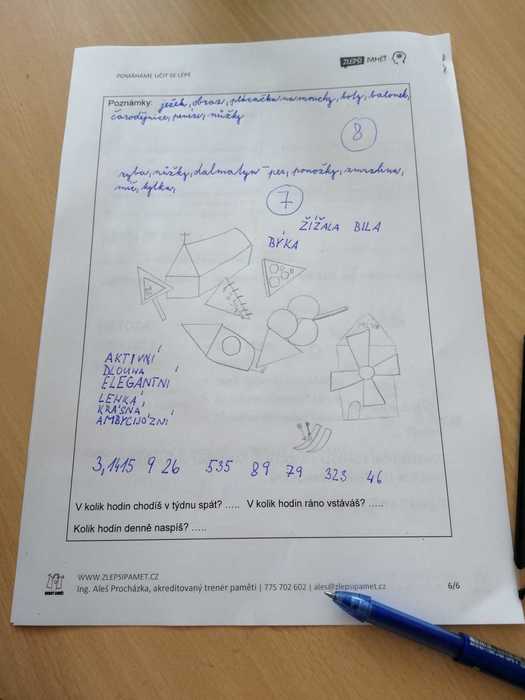 ZLEPŠI PAMET
POMÁHÁME UČIT SE LÉPE
Poznámky: ježek, obraz, plácačka na mouchy, boty, balonek,
čarodějnice, peníze, nůžky
8
ryba, nůžky, dalmatyn - pes, ponožky, zmrzlina,
míč, kytka,
7
ŽÍŽALA BILA
BÝKA
AKTIVNÍ
DLOUHÁ
ELEGANTNÍ
LEHKÁ
KRÁSNÁ
AMBYCIJÓZNÍ
3,1415 9 26 535 89 79 323 46
V kolik hodin chodíš v týdnu spát? ….. V kolik hodin ráno vstáváš? …..
Kolik hodin denně naspíš? …..
WWW.ZLEPSIPAMET.CZ
Ing. Aleš Procházka, akreditovaný trenér paměti | 775 702 602 | ales@zlepsipamet.cz
6/6